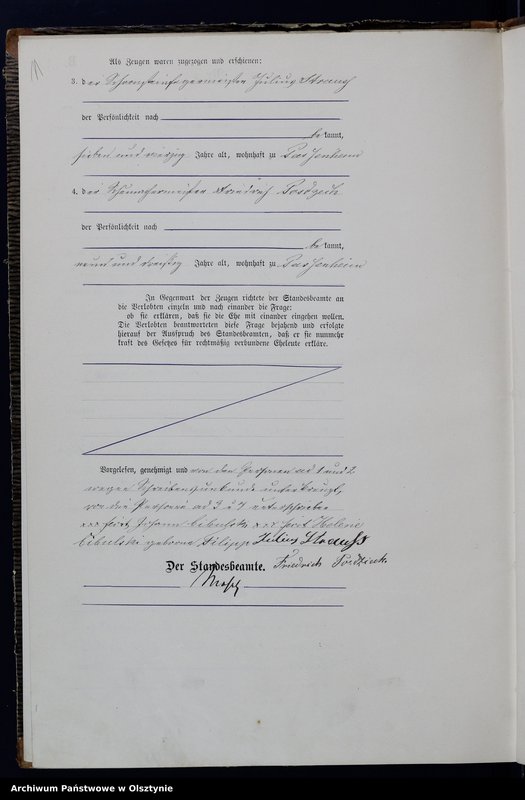 Als Zeugen waren zugezogen und erschienen:
3. der Schornsteinfegermeister Julius Strauss
der Persönlichkeit nach
be kannt,
sieben und vierzig Jahre alt, wohnhaft zu Passenheim
4. der Schuhmachermeister Friedrich
der Persönlichkeit nach
be kannt,
neun und dreißig Jahre alt, wohnhaft zu Passenheim
In Gegenwart der Zeugen richtete der Standesbeamte an
die Verlobten einzeln und nach einander die Frage:
ob sie erklären, daß sie die Ehe mit einander eingehen wollen.
Die Verlobten beantworteten diese Frage bejahend und erfolgte
hierauf der Ausspruch des Standesbeamten, daß er sie nunmehr
kraft des Gesetzes für rechtmäßig verbundene Eheleute erkläre.
Vorgelesen, genehmigt und von den Personen ad 1 und 2
wegen Schreibensunkunde unterkreuzt,
von den Personen ad 3 u 4 unterschrieben
xxx Johann Cibulski xxx Helene
Cibulski geborne Filipp Julius Strauss
Der Standesbeamte. Friedrich
Archiwum Państwowe w Olsztynie